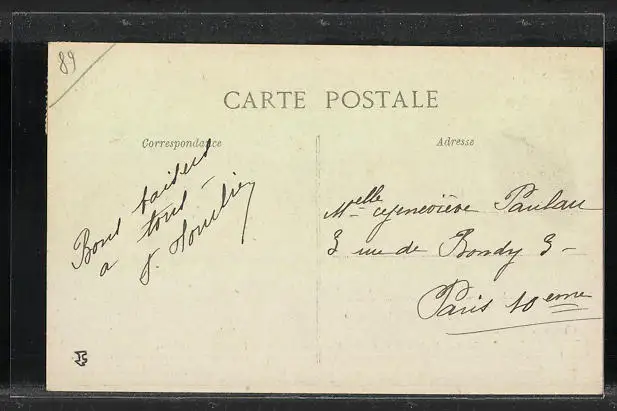 89
CARTE POSTALE
Correspondance
Adresse
Bons baisers
a tous -
Melle Geneviève Paulau
3 rue de Bondy 3 -
Paris 10 eme